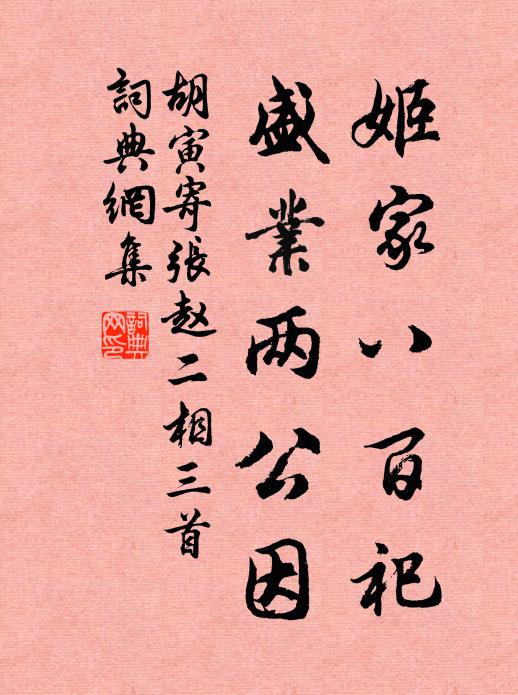 姬家八百祀
盛業两公因
胡寅寄張赵二相三首
詞典網集
詞典网印